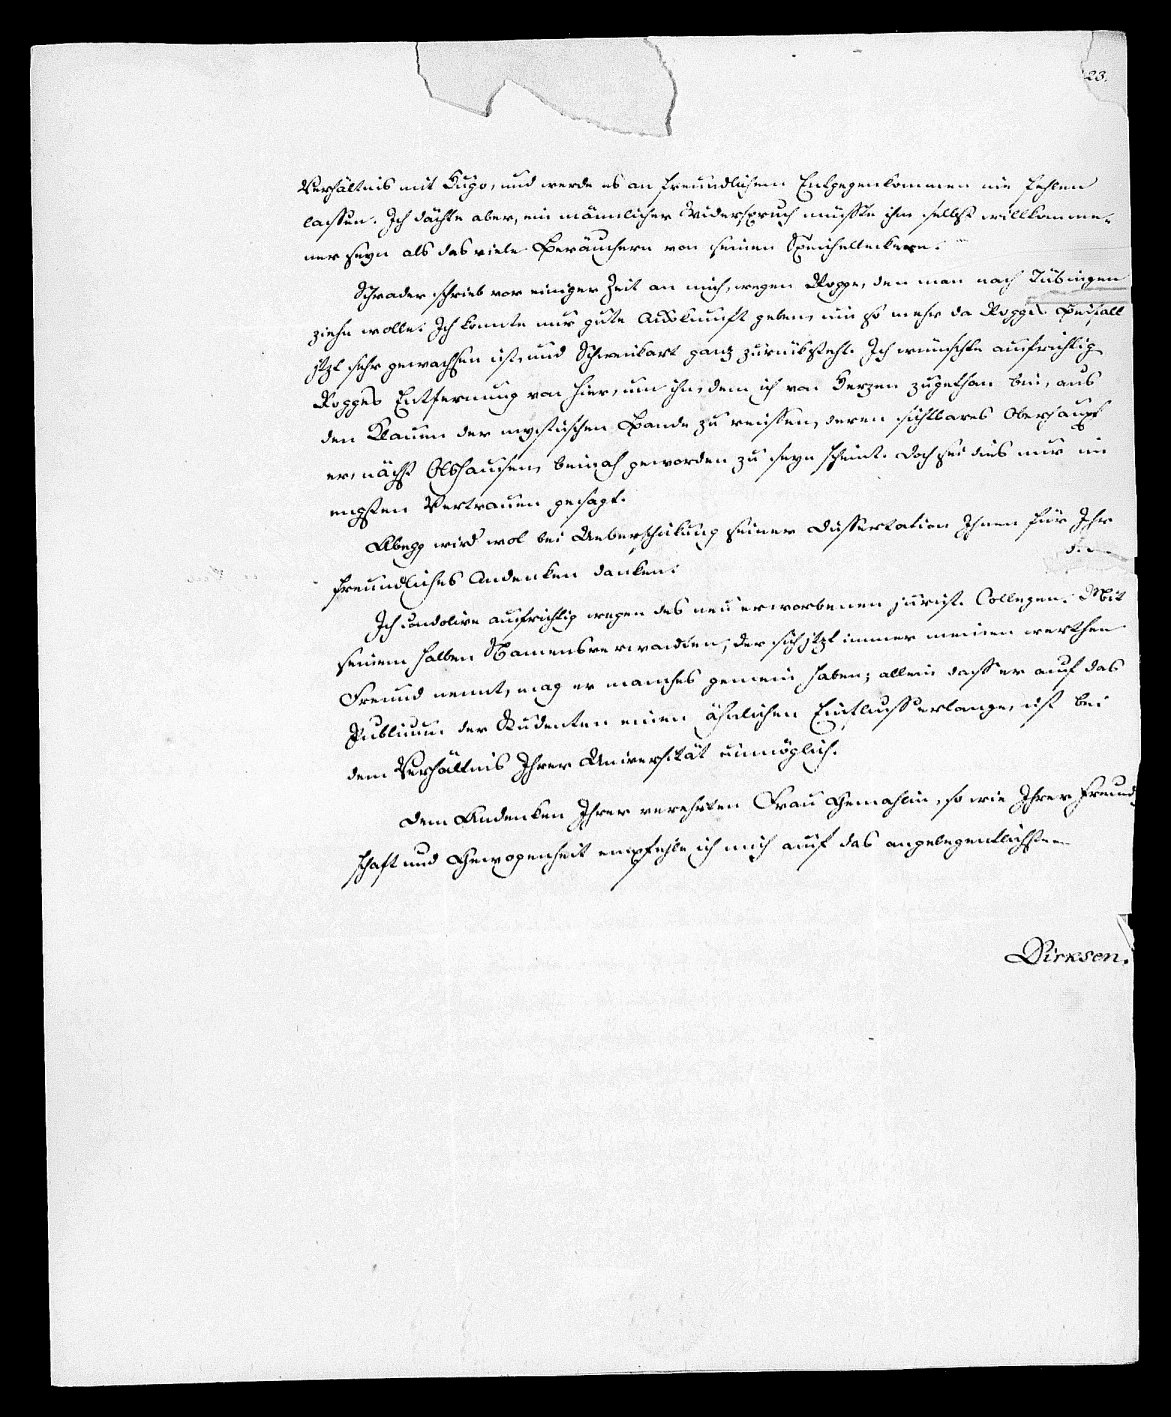 23.
Verhältnis mit Hugo, und werde es an freundlichem Entgegenkommen nie fehlen
lassen. Ich dächte aber, ein männlicher Widerspruch müsste ihm selbst willkomme-
ner seyn als das viele Beräuchern von seinen Speichelleckern.
Schrader schrieb vor einiger Zeit an mich, wegen Rogge, den man nach Tübingen
ziehn wolle. Ich konnte nur gute Auskunft geben, um so mehr da Rogges Beifall
jtzt sehr gewachsen ist, und Schweikart ganz zurüksteht. Ich wünschte aufrichtig
Rogges Entfernung von hier, um ihn, dem ich von Herzen zugethan bin, aus
den Klauen der mystischen Bande zu reissen, deren sichtbares Oberhaupt
er, nächst Olshausen, beinah geworden zu seyn scheint. Doch sei dies nur im
engsten Vertrauen gesagt.
Abegg wird wol bei Ueberschikung seiner Dissertation Ihnen für Ihr
freundliches Andenken danken.
Ich condolire aufrichtig wegen des neu erworbenen jurist. Collegen. Mit
seinem halben Namensverwandten, der sich jtzt immer meinen werthen
Freund nennt, mag er manches gemein haben; allein dass er auf das
Publicum der Studenten einen ähnlichen Einfluss erlange, ist bei
dem Verhältnis Ihrer Universität unmöglich.
Dem Andenken Ihrer verehrten Frau Gemahlin, so wie Ihrer Freund
schaft und Gewogenheit empfehle ich mich auf das angelegentlichste
Dirksen.